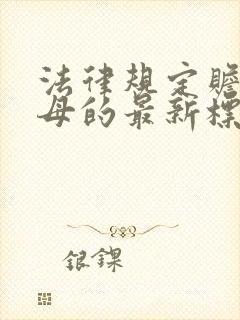 法律规定赡
母的最新标
银鏁